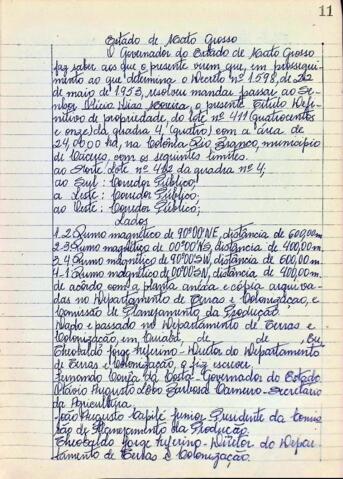 11
Estado de Mato Grosso
O Governador do Estado de Mato Grosso
faz saber aos que o presente virem que, em prossegui-
mento ao que determina o Decreto nº 1.598, de 22
de maio de 1953, resolveu mandar passar ao Se-
nhor Olívio Dias Moreira, o presente Título Defi-
nitivo de propriedade, do lote nº 411 (quatrocentos
e onze) da quadra 4, (quatro) com a área de
24,0000 ha, na Colônia Rio Branco, município
de Cáceres, com os seguintes limites.
ao Norte Lote nº 412 da quadra nº 4;
ao Sul: Corredor Público;
a Leste: Corredor Público.
ao Oeste: Corredor Público;
Lados
1-2 Rumo magnético de 90º00'NE, distância de 600,00m.
2-3 Rumo magnético de 00º00'NS, distância de 400,00m.
3-4 Rumo magnético de 90º00'SW, distância de 600,00m.
4-1 Rumo magnético de 00º00'SN, distância de 400,00m.
de acordo com a planta anexa e cópia arquiva-
das no Departamento de Terras e Colonização, e
Comissão de Planejamento da Produção.
Dado e passado no Departamento de Terras e
Colonização, em Cuiabá, de de , Eu,
Theobaldo Jorge Miferino - Diretor do Departamento
de Terras e Colonização, o fiz escrever.
Fernando Corrêa da Costa - Governador do Estado
Otávio Augusto Lobo Barbosa Carneiro - Secretário
da Agricultura.
João Augusto Capilé Junior Presidente da Comis-
são de Planejamento da Produção.
Theobaldo Jorge Miferino - Diretor do Depar-
tamento de Terras e Colonização.